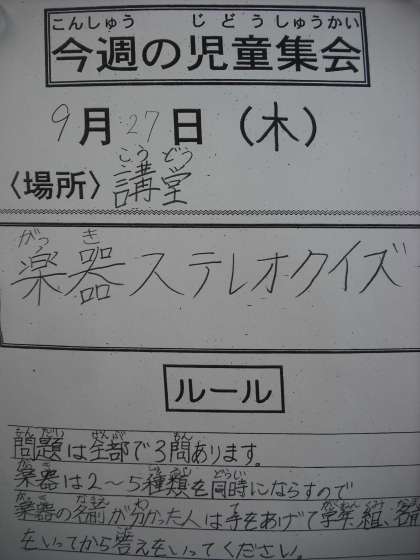 こんしゅう じどうしゅうかい
今週の児童集会
9月27日(木)
こうどう
〈場所〉講堂
がっき
楽器ステレオクイズ
ルール
もんだい ぜんぶ もん
問題は全部で3問あります。
がっき しゅるい どうじ
楽器は2～5種類を同時にならすので
がっき なまえ わ て
楽器の名前が分かった人は手をあげて学年、組、名前
をいってから答えをいってください。